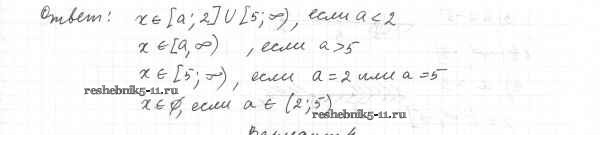 Ответ: x ∈ [a; 2] ∪ [5; ∞), если a < 2
x ∈ [a, ∞) , если a > 5
x ∈ [5; ∞), если a = 2 или a = 5
reshebnik5-11.ru
x ∈ ∅, если a ∈ (2; 5)
reshebnik5-11.ru